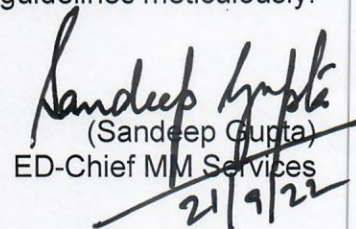 guidelines meticulously.
Sandeep Gupta
(Sandeep Gupta)
ED-Chief MM Services
21/9/22